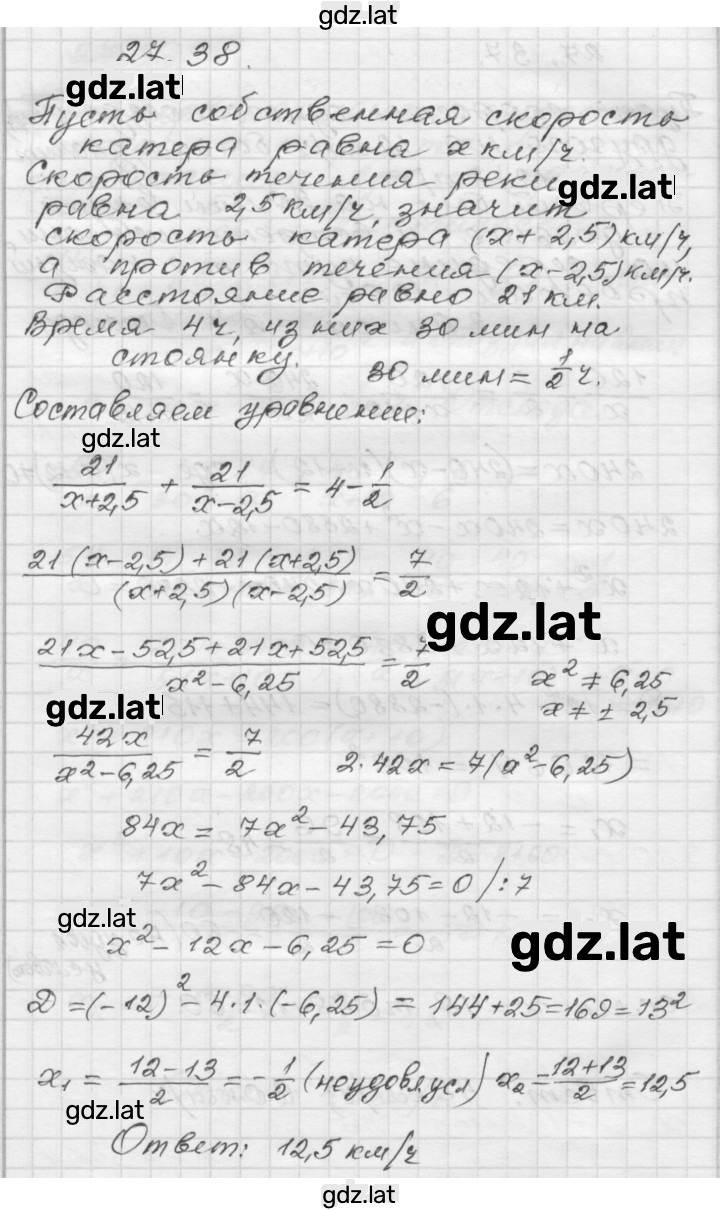 gdz.lat
27.38.
gdz.lat
Пусть собственная скорость
катера равна x км/ч.
Скорость течения реки
gdz.lat
равна 2,5 км/ч, значит
скорость катера (x+2,5) км/ч,
а против течения (x-2,5) км/ч.
Расстояние равно 21 км.
Время 4ч, из них 30 мин на
стоянку. 30 мин = 1/2 ч.
Составляем уравнение:
gdz.lat
21/(x+2,5) + 21/(x-2,5) = 4 - 1/2
(21(x-2,5)+21(x+2,5))/((x+2,5)(x-2,5)) = 7/2
gdz.lat
(21x-52,5+21x+52,5)/(x²-6,25) = 7/2 x² ≠ 6,25
x ≠ ± 2,5
gdz.lat
42x/(x²-6,25) = 7/2 2·42x = 7(x²-6,25)
84x = 7x² - 43,75
7x² - 84x - 43,75 = 0 /:7
gdz.lat
x² - 12x - 6,25 = 0
gdz.lat
D = (-12)² - 4·1·(-6,25) = 144+25=169=13²
x₁ = (12-13)/2 = -1/2 (неудовл усл) x₂ = (12+13)/2 = 12,5
gdz.lat
Ответ: 12,5 км/ч
gdz.lat